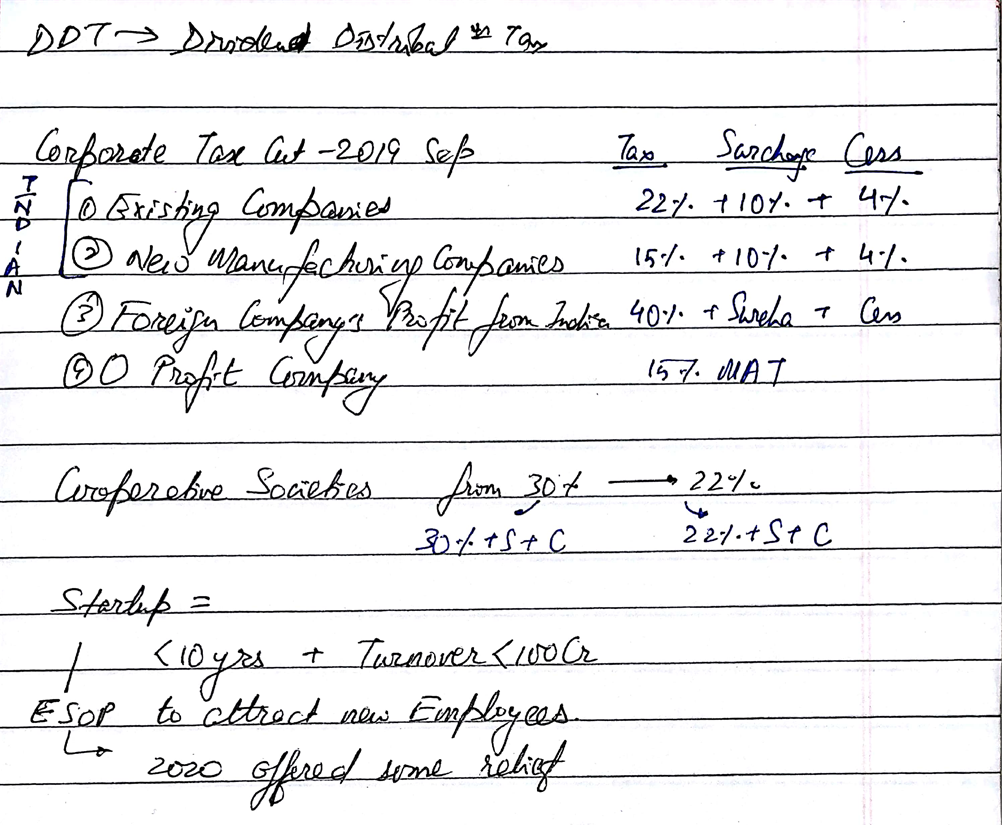 DDT → Dividend Distribution Tax
Corporate Tax Cut - 2019 Sep Tax Surcharge Cess
INDIAN
① Existing Companies 22% + 10% + 4%
② New Manufacturing Companies 15% + 10% + 4%
③ Foreign Company's Profit from India 40% + Surcha + Cess
④ 0 Profit Company 15% MAT
Cooperative Societies from 30% → 22%
30% + S + C 22% + S + C
Startup =
<10 yrs + Turnover < 100 Cr
ESOP to attract new Employees.
↳ 2020 offered some relief